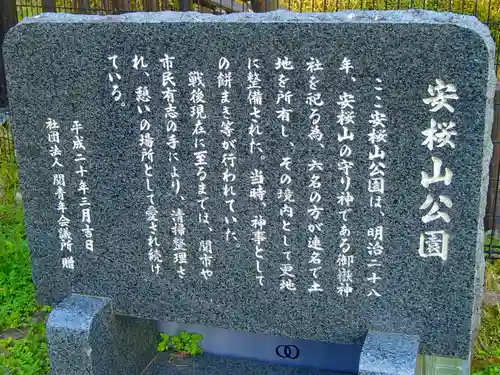 安桜山公園
ここ安桜山公園は、明治二十八
年、安桜山の守り神である御嶽神
社を祀る為、六名の方が連名で土
地を所有し、その境内として更地
に整備された。当時、神事として
の餅まき等が行われていた。
戦後現在に至るまでは、関市や
市民有志の手により、清掃整理さ
れ、憩いの場所として愛され続け
ている。
平成二十年三月吉日
社団法人 関青年会議所 贈